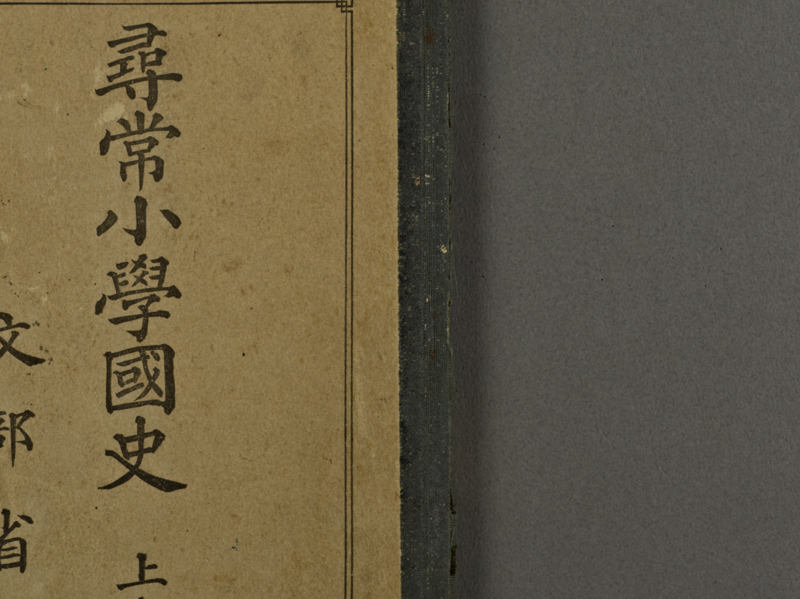 尋常小學國史 上
文部省